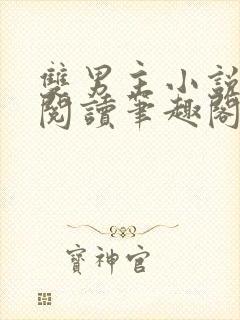 雙男主小說
閱讀筆趣閣
寶神官